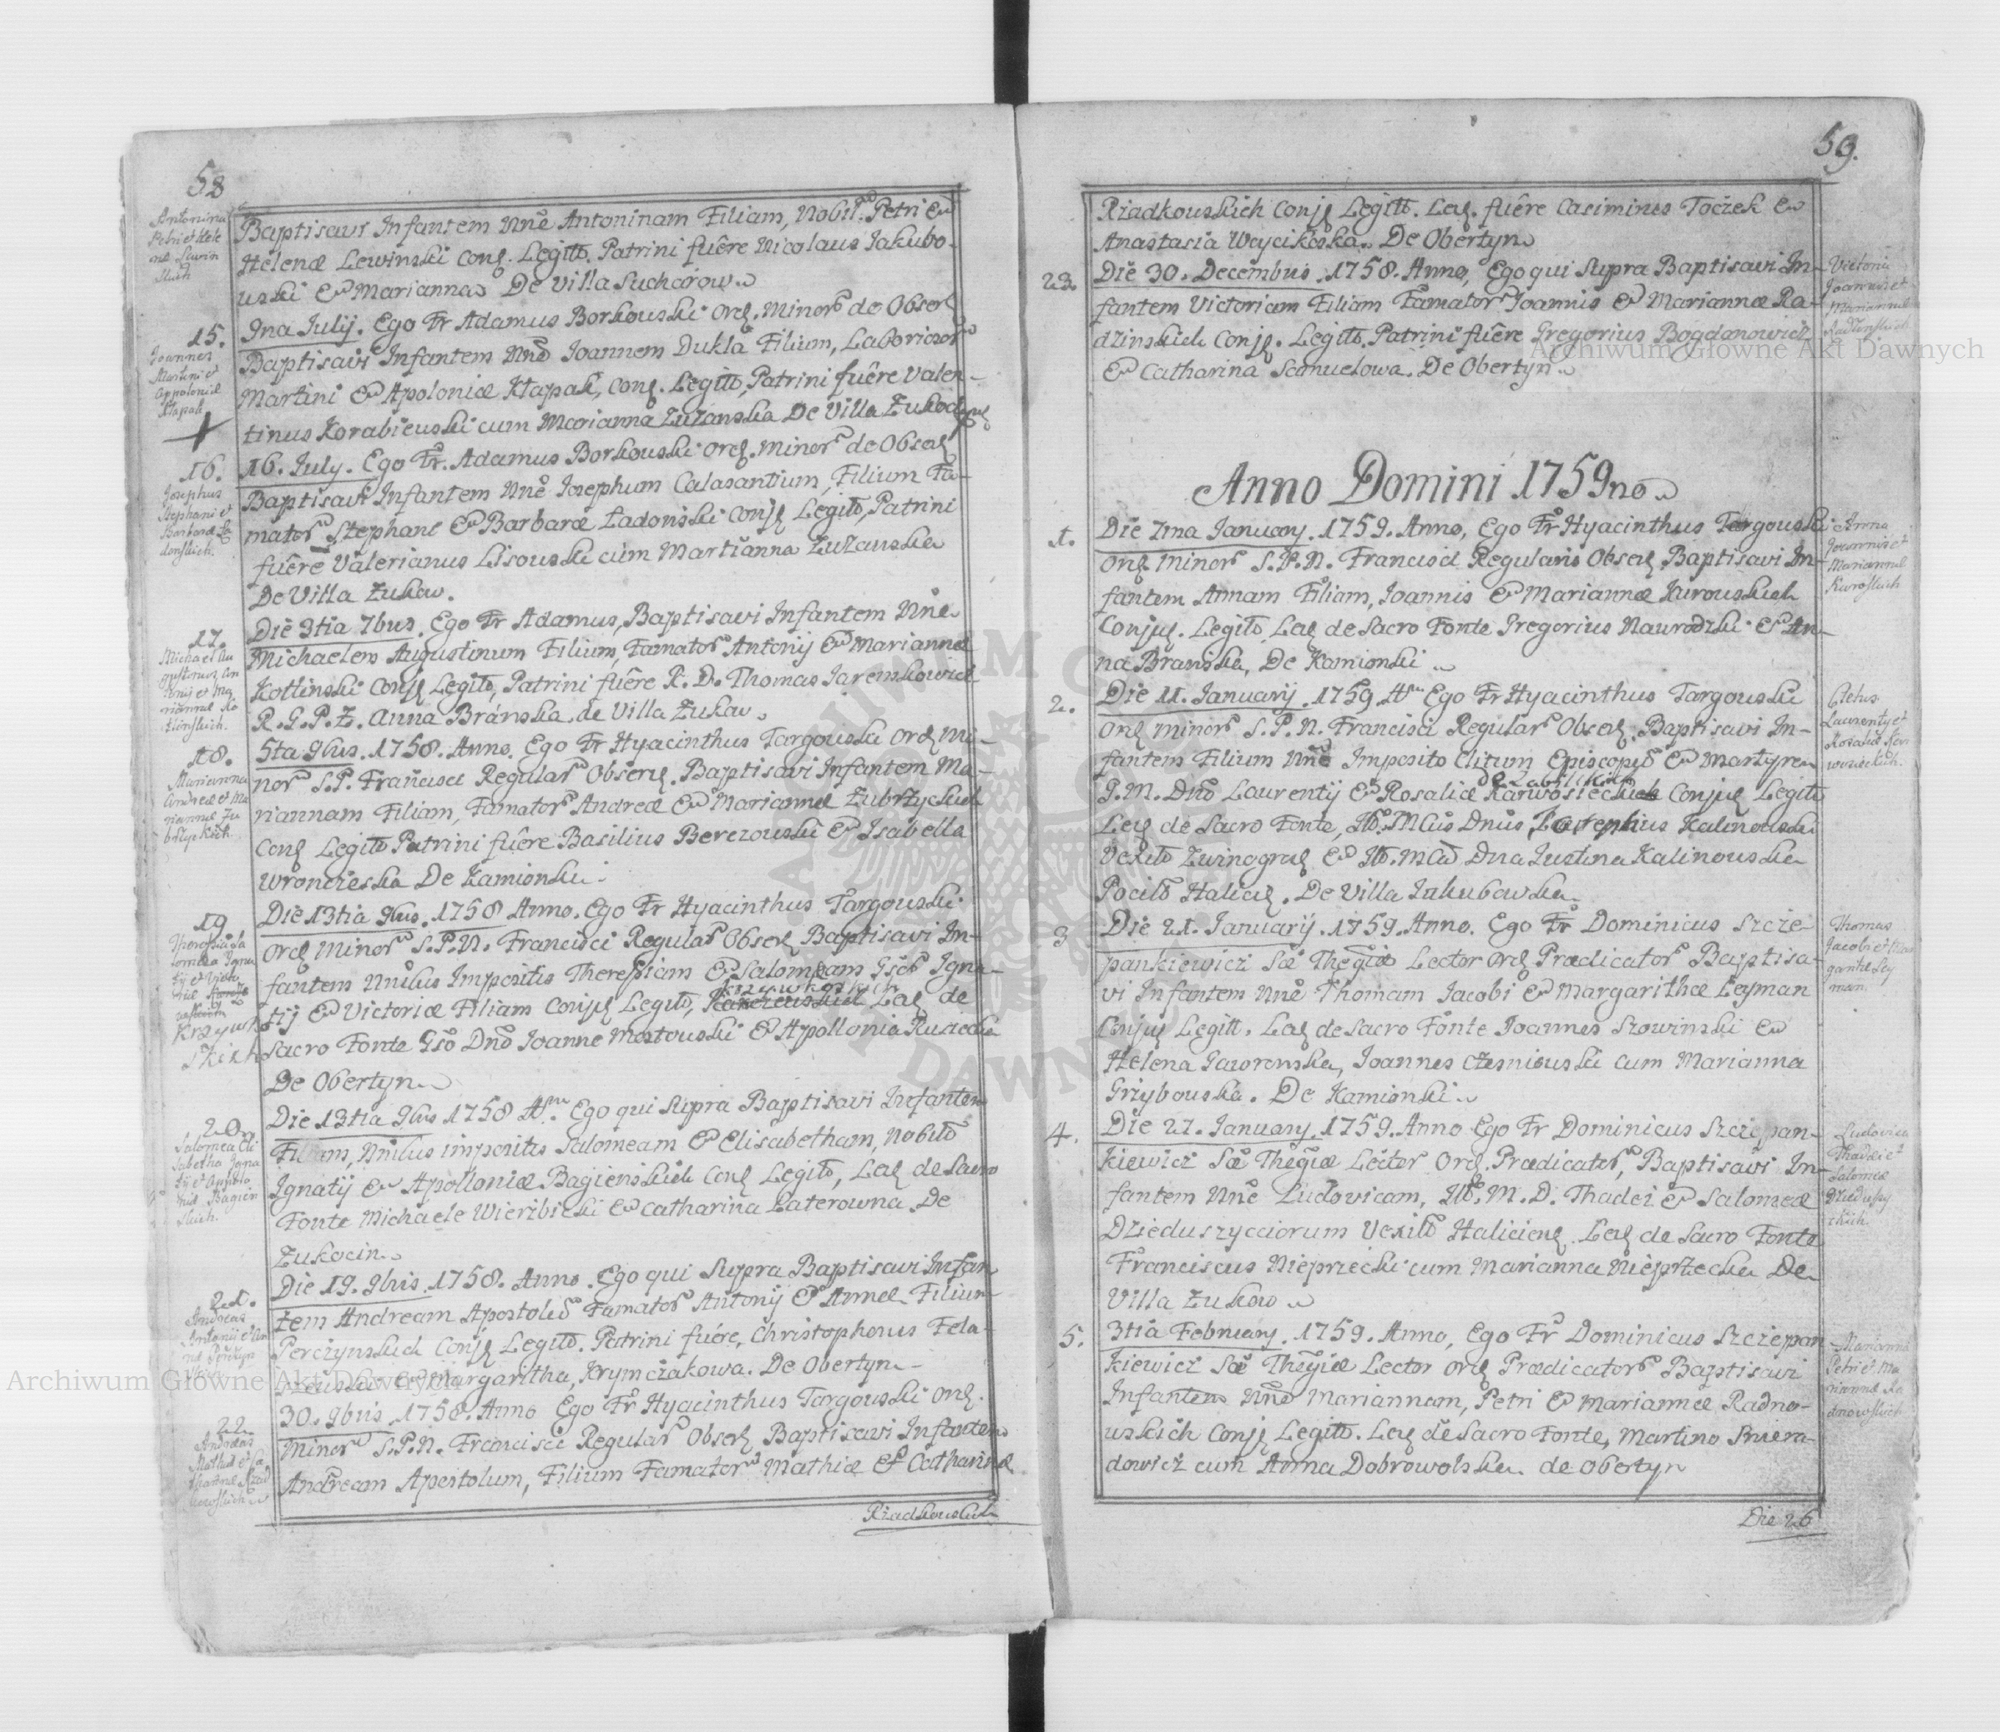 58
Antonina
Petri et Hele
næ Lewin
skich
Baptisavi Infantem Nñe Antoninam Filiam, Nobil. Petri &
Helenæ Lewinski Conj. Legitt. Patrini fuêre Nicolaus Jakubo-
uski & Marianna De Villa Suchorow
15.
Joannes
Martini et
Appoloniæ
Kłapak
Ima Julij. Ego Fr Adamus Borkouski Ord. Minor. de Obser.
Baptisavi Infantem Nñe Joannem Dukla Filium, Laborioso.
Martini & Apoloniæ Kłapak, Conj. Legitt, Patrini fuêre Valen-
tinus Korabieuski cum Marianna Zuzanska De Villa Zukoc
16.
Josephus
Stephani et
Barbaræ Ła
donskich.
16. July. Ego Fr. Adamus Borkouski Ord. Minor. de Obser.
Baptisavi Infantem Nñe Josephum Calasantium, Filium Fa-
mator. Stephani & Barbaræ Ładonski Conj. Legitt, Patrini
fuêre Valerianus Lisouski cum Martianna Zuzanska
De Villa Zukow.
17.
Michael Au
gustinus, An
tonij et Ma
riannæ Ko
tlinskich.
Die 3tia 7bris. Ego Fr Adamus, Baptisavi Infantem Nñe
Michaelem Augustinum Filium, Famator. Antonij & Mariannæ
Kotlinski Conj. Legitt, Patrini fuêre R. D. Thomas Jaremkowicz
R. G. P. Z. Anna Bránska de Villa Zukow
18.
Marianna
Andreæ et Ma
riannæ Zu
brzyckich
5ta 9bris. 1758. Anno. Ego Fr Hyacinthus Targouski Ord. Mi-
nor. S. P. Francisci Regular. Observ. Baptisavi Infantem Ma-
riannam Filiam, Famator. Andreæ & Mariannæ Zubrzyckich
Conj. Legitt. Patrini fuêre Basilius Berezouski & Isabella
Wronczeska De Kamionki.
19.
Theressia Sa
lomea Igna
tij et Victo
riæ
Krzywko
skich
Die 13tia 9bris. 1758 Anno. Ego Fr Hyacinthus Targouski
Ord. Minor. S. P. N. Francisci Regular. Obser. Baptisavi In-
fantem Nnibus Impositis Theressiam & Salomeam Gsor. Igna-
Krzywkoskich
tij & Victoriæ Filiam Conju. Legitt, Lev. de
Sacro Fonte Gso Dno Joanne Mostouski & Apollonia Rudecka
De Obertyn
20.
Salomea Eli
sabetha Igna
tij et Appolo
niæ Bagien
skich.
Die 13tia 9bris 1758 A. Ego qui Supra Baptisavi Infantem
Filiam, Nnibus impositis Salomeam & Elisabetham, Nobil.
Ignatij & Apolloniæ Bagienskich Conj. Legitt, Lev. de Sacro
Fonte Michaele Wierzbicki & Catharina Laterowna. De
Zukocin
21.
Andreas
Antonij et An
næ Perczyn
skich
Die 19. 9bris. 1758. Anno. Ego qui Supra Baptisavi Infan
tem Andream Apostolum Famator. Antonij & Annæ Filium
Perczynskich Conj. Legitt. Patrini fuére, Christophorus Fela-
& Margaritha, Krymczakowa. De Obertyn
22
Andreas
Mathiæ et Ca
tharinæ Rzad
kowskich
30. 9bris 1758. Anno Ego Fr Hyacinthus Targouski Ord.
Minor. S. P. N. Francisci Regular. Obser. Baptisavi Infantem
Andream Apostolum, Filium Famator. Mathiæ & Catharinæ
Rzadkouskich
59.
Rzadkouskich Conj. Legitt. Lev. fuêre Casimirus Toczek &
Anastasia Woycikoska. De Obertyn
23
Victoria
Joannis et
Mariannæ
Radzinskich
Die 30. Decembris. 1758. Anno, Ego qui Supra Baptisavi In-
fantem Victoriam Filiam Famator. Joannis & Mariannæ Ra-
dzinskich Conj. Legitt. Patrini fuêre Gregorius Bogdanowicz
& Catharina Samuelowa. De Obertyn
Anno Domini 1759no
1.
Anna
Joannis et
Mariannæ
Kuroskich
Die 7ma January. 1759. Anno, Ego Fr Hyacinthus Targouski
Ord. Minor. S. P. N. Francisci Regularis Obser. Baptisavi In-
fantem Annam Filiam, Joannis & Mariannæ Kurouskich
Conjug. Legitt, Lev. de Sacro Fonte Gregorius Naurodzki & An-
na Branska, De Kamionki
2.
Cletus
Laurenty et
Rosaliæ Kar
wosieckich.
Die 11. Januarij. 1759. A. Ego Fr Hyacinthus Targouski
Ord. Minor. S. P. N. Francisci Regular. Obser. Baptisavi In-
fantem Filium Nñe Imposito Clitum Episcopum & Martyrem
de Zabilskich
G. M. Dno Laurentij & Rosaliæ Karwosieckich Conjug. Legitt
Lev. de Sacro Fonte, Ill. Mcus Dnus, Josephus Kalinouski
Vexill. Zwinogrod. & Ill. Mca Dna Justina Kalinouska
Pocill. Halicien. De Villa Jakubowka
3
Thomas
Jacobi et Mar
garithæ Ley
man.
Die 21. Januarij. 1759. Anno. Ego Fr Dominicus Szcze-
pankiewicz Sæ Theogiæ Lector Ord. Prædicator. Baptisa-
vi Infantem Nñe Thomam Jacobi & Margarithæ Leyman
Conjug Legitt. Lev. de Sacro Fonte Joannes Szowinski &
Helena Gaworenska, Joannes Czesniouski cum Marianna
Grzybouska. De Kamionki
4.
Ludovica
Thadæi et
Salomeæ
Dzieduszy
ckich
Die 27. January. 1759. Anno Ego Fr Dominicus Szczepan-
kiewicz Sæ Theogiæ Lector Ord. Prædicator. Baptisavi In-
fantem Nñe Ludovicam, Ill. M. D. Thadei & Salomeæ
Dzieduszycciorum Vexill. Halicien. Lev. de Sacro Fonte
Franciscus Nieprzecki cum Marianna Nieprzecka De
Villa Zukow
5.
Marianna
Petri et Ma
riannæ Ra
dnowskich
3tia February. 1759. Anno, Ego Fr Dominicus Szczepan
kiewicz Sæ Theogiæ Lector Ord. Prædicator. Baptisavi
Infantem Nñe Mariannam, Petri & Mariannæ Radno-
uskich Conj. Legitt. Lev. de Sacro Fonte, Martino
dowicz cum Anna Dobrowolska de Obertyn
Die 26
Archiwum Główne Akt Dawnych
Archiwum Główne Akt Dawnych